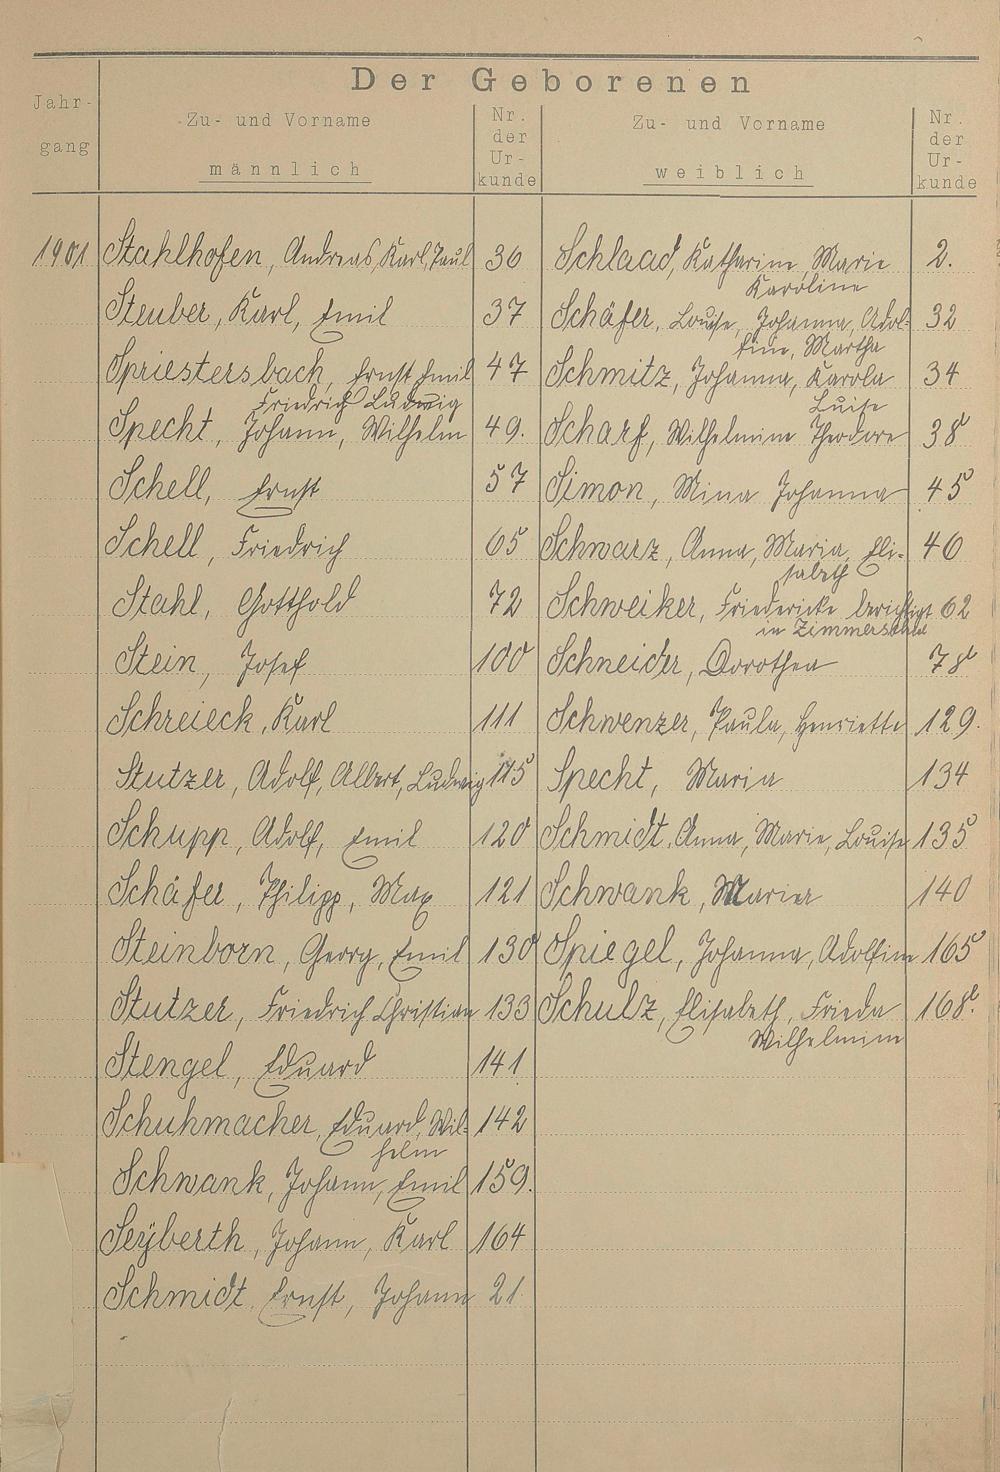 Der Geborenen
Jahr-
gang
Zu- und Vorname
männlich
Nr.
der
Ur-
kunde
Zu- und Vorname
weiblich
Nr.
der
Ur-
kunde
1901 Stahlhofen, Andreas, Karl, Paul 36 Schlaad, Katharine, Marie 2.
Karoline
Steuber, Karl, Emil 37 Schäfer, Louise, Johanna, Adol- 32
fine, Martha
Spriestersbach, Ernst Emil 47 Schmitz, Johanna, Karola 34
Friedrich Ludwig Luise
Specht, Johann, Wilhelm 49. Scharf, Wilhelmine Theodore 38
Schell, Ernst 57 Simon, Mina Johanna 45
Schell, Friedrich 65 Schwarz, Anna, Maria, Eli- 46
sabeth
Stahl, Gotthold 72 Schweiker, Friedericke berichtigt 62
in
Stein, Josef 100 Schneider, Dorothea 78
Schreieck, Karl 111 Schwenzer, Paula, Henriette 129.
Stutzer, Adolf, Albert, Ludwig 115 Specht, Maria 134
Schupp, Adolf, Emil 120 Schmidt, Anna, Marie, Louise 135
Schäfer, Philipp, Max 121 Schwank, Marier 140
Steinborn, Georg, Emil 130 Spiegel, Johanna, Adolfine 165
Stutzer, Friedrich Christian 133 Schulz, Elisabeth, Frieda 168.
Wilhelmine
Stengel, Eduard 141
Schuhmacher, Eduard, Wil- 142
helm
Schwank, Johann, Emil 159.
Seÿberth, Johann, Karl 164
Schmidt, Ernst, Johann 21